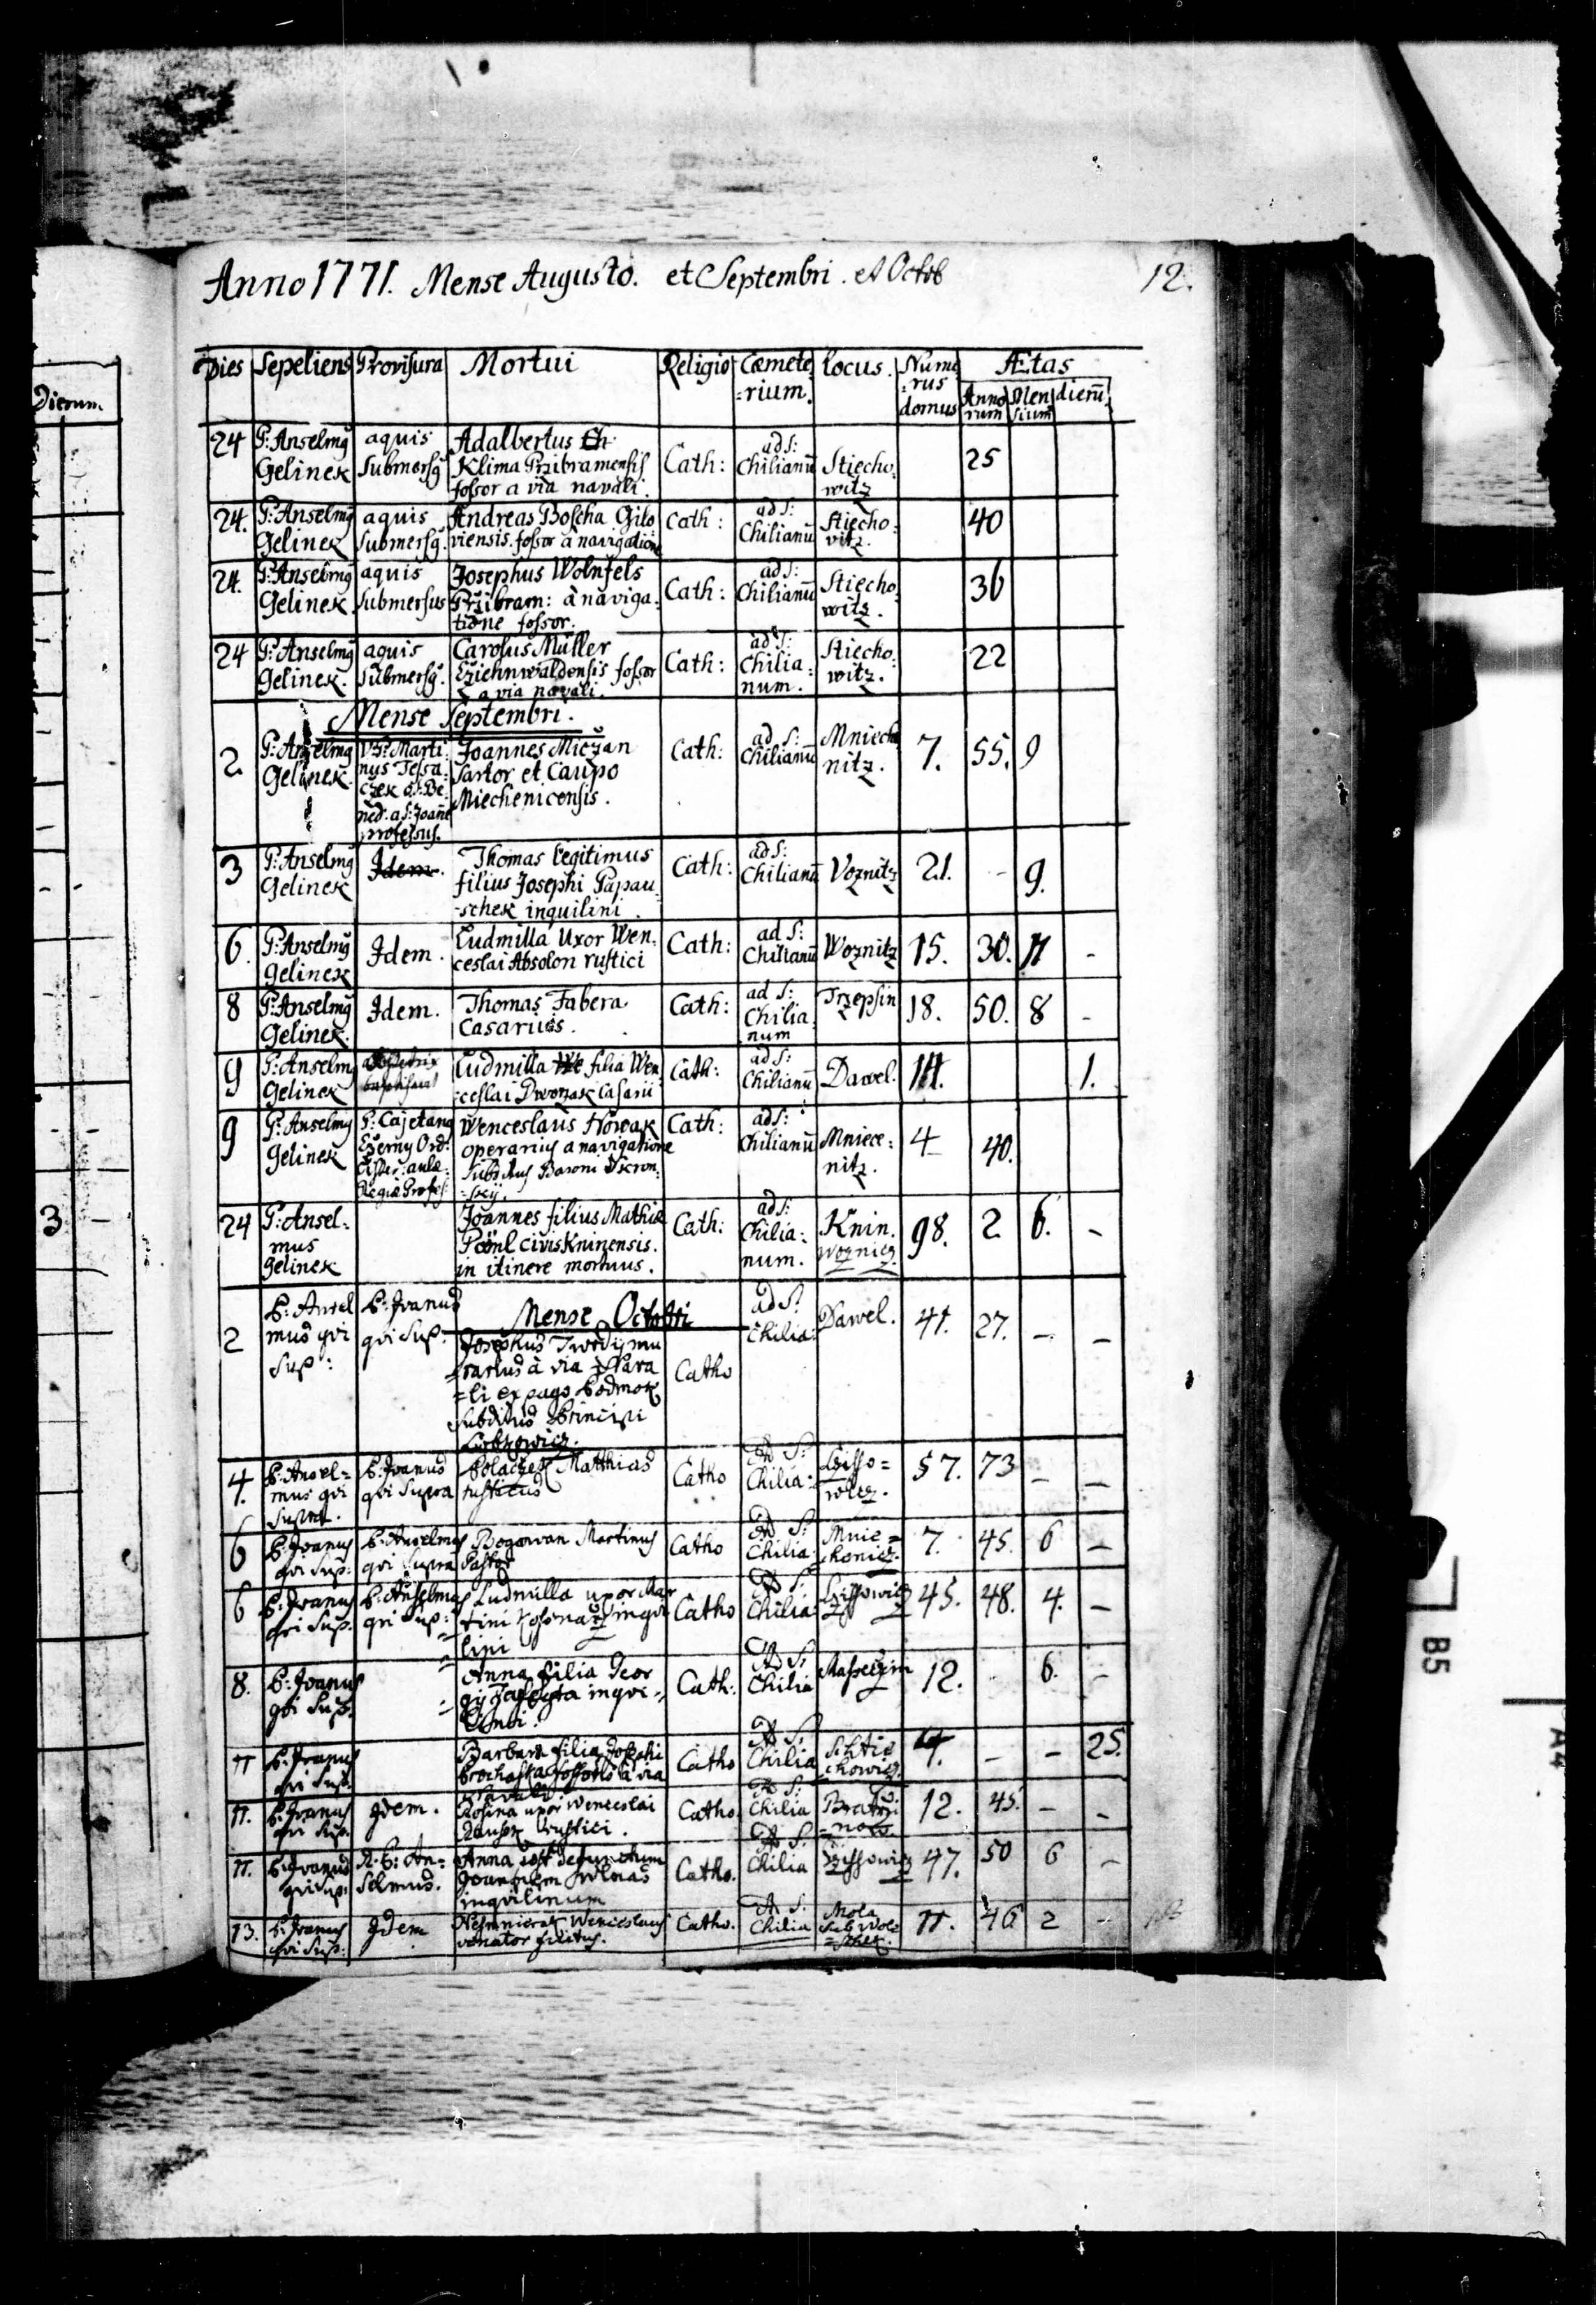 Anno 1771. Mense Augusto. et Septembri. et Octob
12.
Dies Sepeliens Provisura Mortui Religio Cæmete=rium. Locus. Nume=rus domus Ætas
Annorum Mensium dierū.
Dierum
24 P: Anselmg Gelinek aquis submersg Adalbertus Klima Przibramensis fossor a via navali. Cath: ad S: Chilianū Stiecho:witz 25
24. P: Anselmg Gelinek aquis submersg. Andreas Boscha Giloviensis. fossor à navigatione Cath: ad S: Chilianū Stiecho:vitz. 40
24. P: Anselmg Gelinek aquis submersus Josephus Wolnfels Przibram: à naviga:tione fossor. Cath: ad S: Chilianū Stiecho:witz. 36
24 P: Anselmg Gelinek. aquis submersg. Carolus Müller fossor a via navali. Cath: ad S: Chilia:num. Stiecho:witz. 22
Mense Septembri.
2 P: Anselmg Gelinek. P: Marti:nus a S: Joanne professus. Joannes Miczan Sartor et Caupo Miechenicensis. Cath: ad S: Chilianū Mniechenitz. 7. 55. 9
3 P: Anselmg Gelinek Idem. Thomas legitimus filius Josephi Papau-schek inquilini. Cath: ad S: Chilianū Voznitz 21. - 9.
6. P: Anselmg Gelinek Idem. Ludmilla Uxor Wen:ceslai Absolon rustici Cath: ad S: Chilianū Woznitz 15. 30. 11 -
8 P: Anselmg Gelinek. Idem. Thomas Fabera Casarius. Cath: ad S: Chilia:num Trzepsin 18. 50. 8 -
9 P: Anselmg Gelinek Ludmilla filia Wen:ceslai Dworzak Casarii Cath: ad S: Chilianū Dawel. 14. 1.
9 P: Anselmg Gelinek P: Cajetang Czerny Ord: Cister: aulæ Regiæ Profes: Wenceslaus Nowak operarius a navigatione subditus Baroni Cath: ad S: Chilianū Mniece:nitz. 4 40.
24 P: Ansel=mus Gelinek Joannes filius Mathiæ Pöönl civis Kninensis. in itinere mortuus. Cath: ad S: Chilia:num. Knin. Woznicz. 98. 2 6. -
Mense Octobri
2 P: Ansel mus qvi sup: P: Ivanus qvi sup: Josephus Twrdy murarius à via Nava=li ex pago Podmok subditus Principi Lobkowicz. Catho ad S: Chilia: Dawel. 41. 27. - -
4. P: Ansel=mus qvi supra. P: Ivanus qvi supra Polaczek Matthias rusticus Catho Ad S: Chilia: 57. 73 - -
6 P: Ivanus qvi sup: P: Anselmus qvi supra Martinus Pastor Catho Ad S: Chilia: Mnie=chenicz. 7. 45. 6 -
6 P: Ivanus qvi sup. P: Anselmus qvi sup: Ludmilla uxor Mar tini inqvi lini Catho Ad S: Chilia: 45. 48. 4. -
8. P: Ivanus qvi sup. Anna filia Geor gij inqvi= lini. Cath: Ad S: Chilia 12. 6. -
11 P: Ivanus qvi sup. Barbara filia Josephi Prochaska fossoris à via Navali Catho Ad S: Chilia Sstie chowicz. 4. - - 25.
11. P: Ivanus qvi sup. Idem. Rosina uxor Wenceslai rustici. Catho. Ad S: Chilia 12. 45. - -
11. P: Ivanus qvi sup: R. P: An=selmus. Anna post defunctum Joannem inqvilinum Catho. Ad S: Chilia 47. 50 6 -
13. P: Ivanus qvi sup: Idem Wenceslaus venator Catho. Ad S: Chilia Mola sub 11. 46 2 -
3
B5
A4